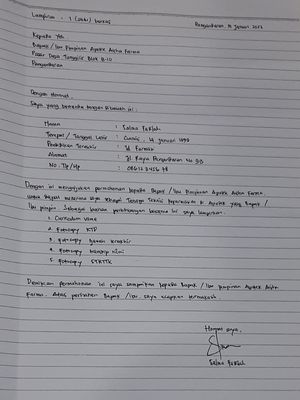 Lampiran : 1 (satu) berkas
Pangandaran, 16 Januari 2022
Kepada Yth.
Bapak / Ibu Pimpinan Apotek Aisha Farma
Pasar Desa Tunggilis Blok B-10
Pangandaran
Dengan Hormat.
Saya yang bertanda tangan dibawah ini :
Nama : Salma Fadilah
Tempat / Tanggal Lahir : Ciamis, 14 Januari 1999
Pendidikan Terakhir : D3 Farmasi
Alamat : Jl. Raya Pangandaran No 313
No. Tlp / Hp : 08612345678
Dengan ini mengajukan permohonan kepada Bapak / Ibu Pimpinan Apotek Aisha Farma.
untuk dapat menerima saya sebagai Tenaga Teknis Kefarmasian di Apotek yang Bapak /
Ibu pimpin. Sebagai bahan pertimbangan bersama ini saya lampirkan :
1. Curriculum Vitae
2. Fotocopy KTP
3. Fotocopy Ijazah terakhir
4. Fotocopy transkrip nilai
5. Fotocopy STRTTK
Demikian permohonan ini saya sampaikan kepada Bapak / Ibu Pimpinan Apotek Aisha
Farma. Atas perhatian Bapak / Ibu, saya ucapkan terimakasih.
Hormat saya,
Salma Fadilah